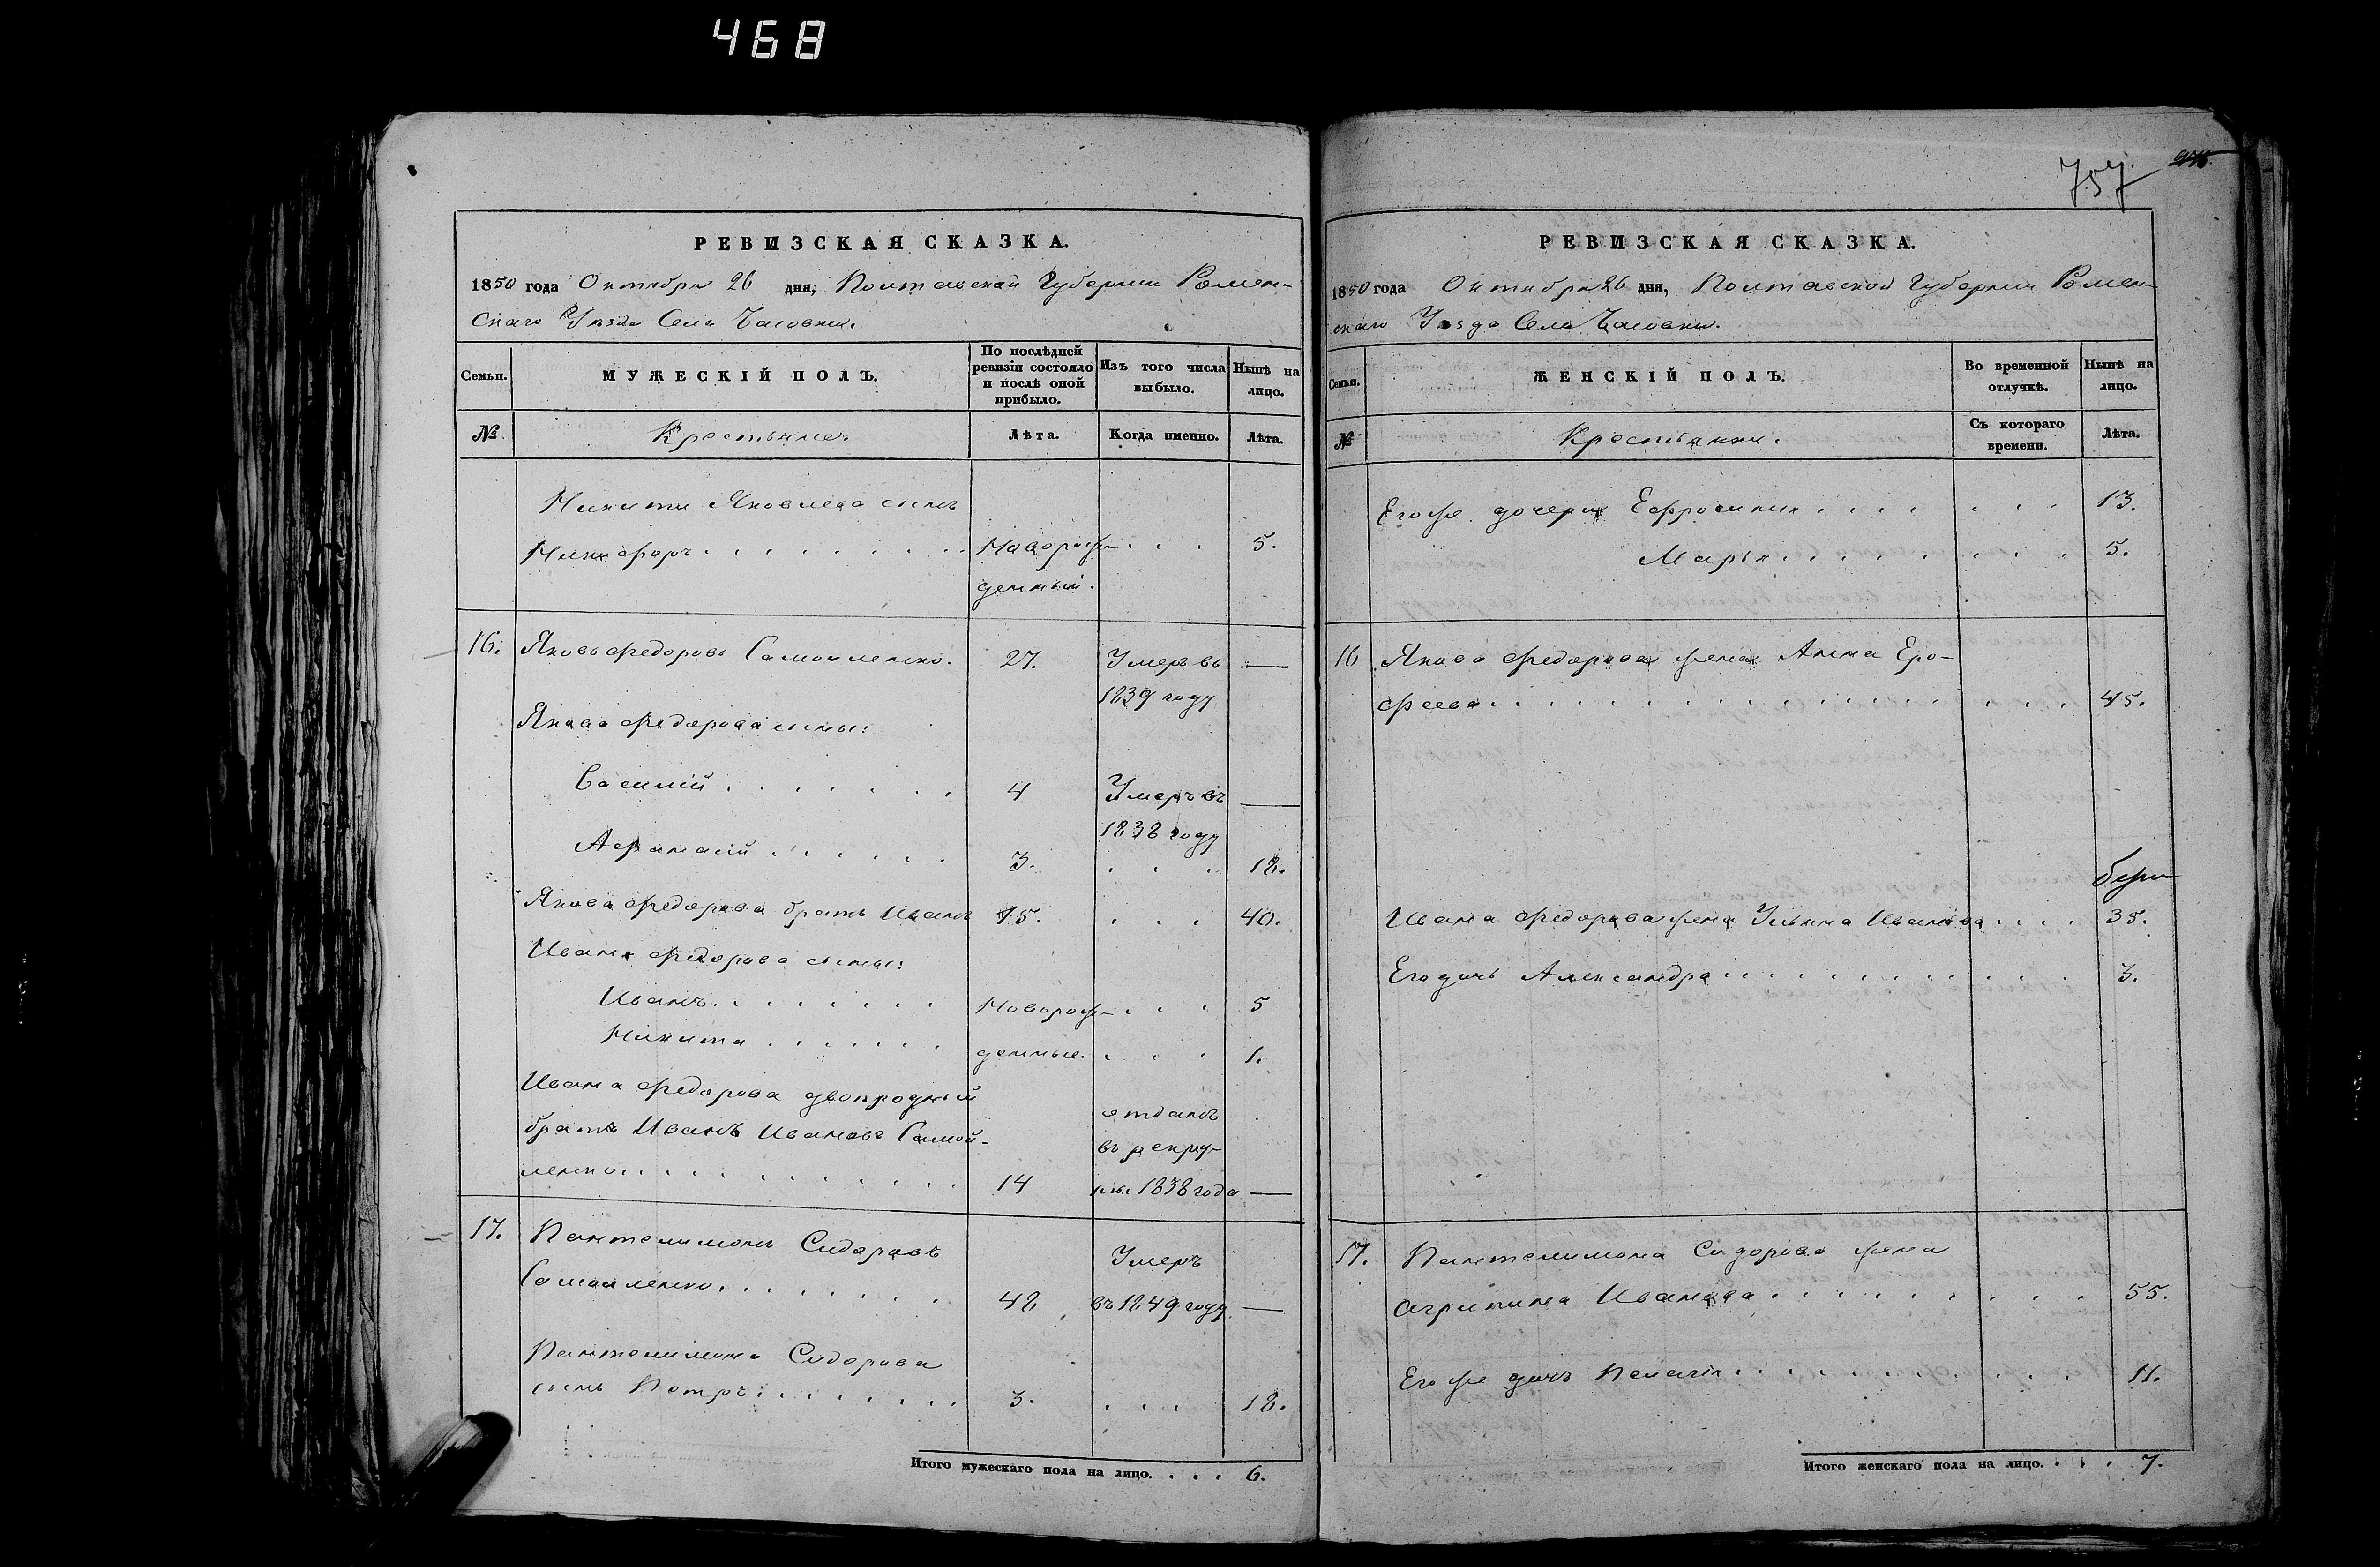 468
РЕВИЗСКАЯ СКАЗКА.
1850 года Октября 26 дня, Полтавской Губернии Ромен-
скаго Уезда Села Чаговки.
Семьи. МУЖЕСКІЙ ПОЛЪ. По послѣдней ревизіи состояло и послѣ оной прибыло. Изъ того числа выбыло. Нынѣ на лицо.
№ Крестьяне. Лѣта. Когда именно. Лѣта.
Никиты Яковлева сынъ
Никифоръ . . . . . . . . Новорож- . . . 5.
денный.
16. Яковъ Федоровъ Самойленко. 27. Умеръ въ —
1839 году
Якова Федорова сыны:
Василій . . . . . . . 4 Умеръ въ —
1838 году
Афанасій . . . . . . 3. . . . 18.
Якова Федорова братъ Иванъ 25. . . . 40.
Ивана Федорова сыны:
Иванъ . . . . . . . Новорож- . . . 5
Никита . . . . . . . денные. . . . 1.
Ивана Федорова двоюродный отданъ
братъ Иванъ Ивановъ Самой- въ рекру-
ленко . . . . . . . . . . . 14 ты 1838 года —
17. Пантелимонъ Сидоровъ Умеръ
Самойленко . . . . . . . 48 въ 1849 году —
Пантелимона Сидорова
сынъ Петръ . . . . . . . 3. . . . 18.
Итого мужескаго пола на лицо. . . . 6.
757
РЕВИЗСКАЯ СКАЗКА.
1850 года Октября 26 дня, Полтавской Губернии Ромен-
скаго Уезда Села Чаговки.
Семьи. ЖЕНСКІЙ ПОЛЪ. Во временной отлучкѣ. Нынѣ на лицо.
№ Крестьянки. Съ котораго времени. Лѣта.
Его же дочери Ефросиния . . . . . . . 13.
Марья . . . . . . . . 5.
16 Якова Федорова жена Анна Еро-
феева . . . . . . . . . . . . . . . . 45.
Ивана Федорова жена Ульяна Иванова . . . . 35.
Его дочь Александра . . . . . . . . . . . 3.
17. Пантелимона Сидорова жена
Агрипина Иванова . . . . . . . . . . 55.
Его же дочь Пелагія . . . . . . . . . . 11.
Итого женскаго пола на лицо. . . . 7.